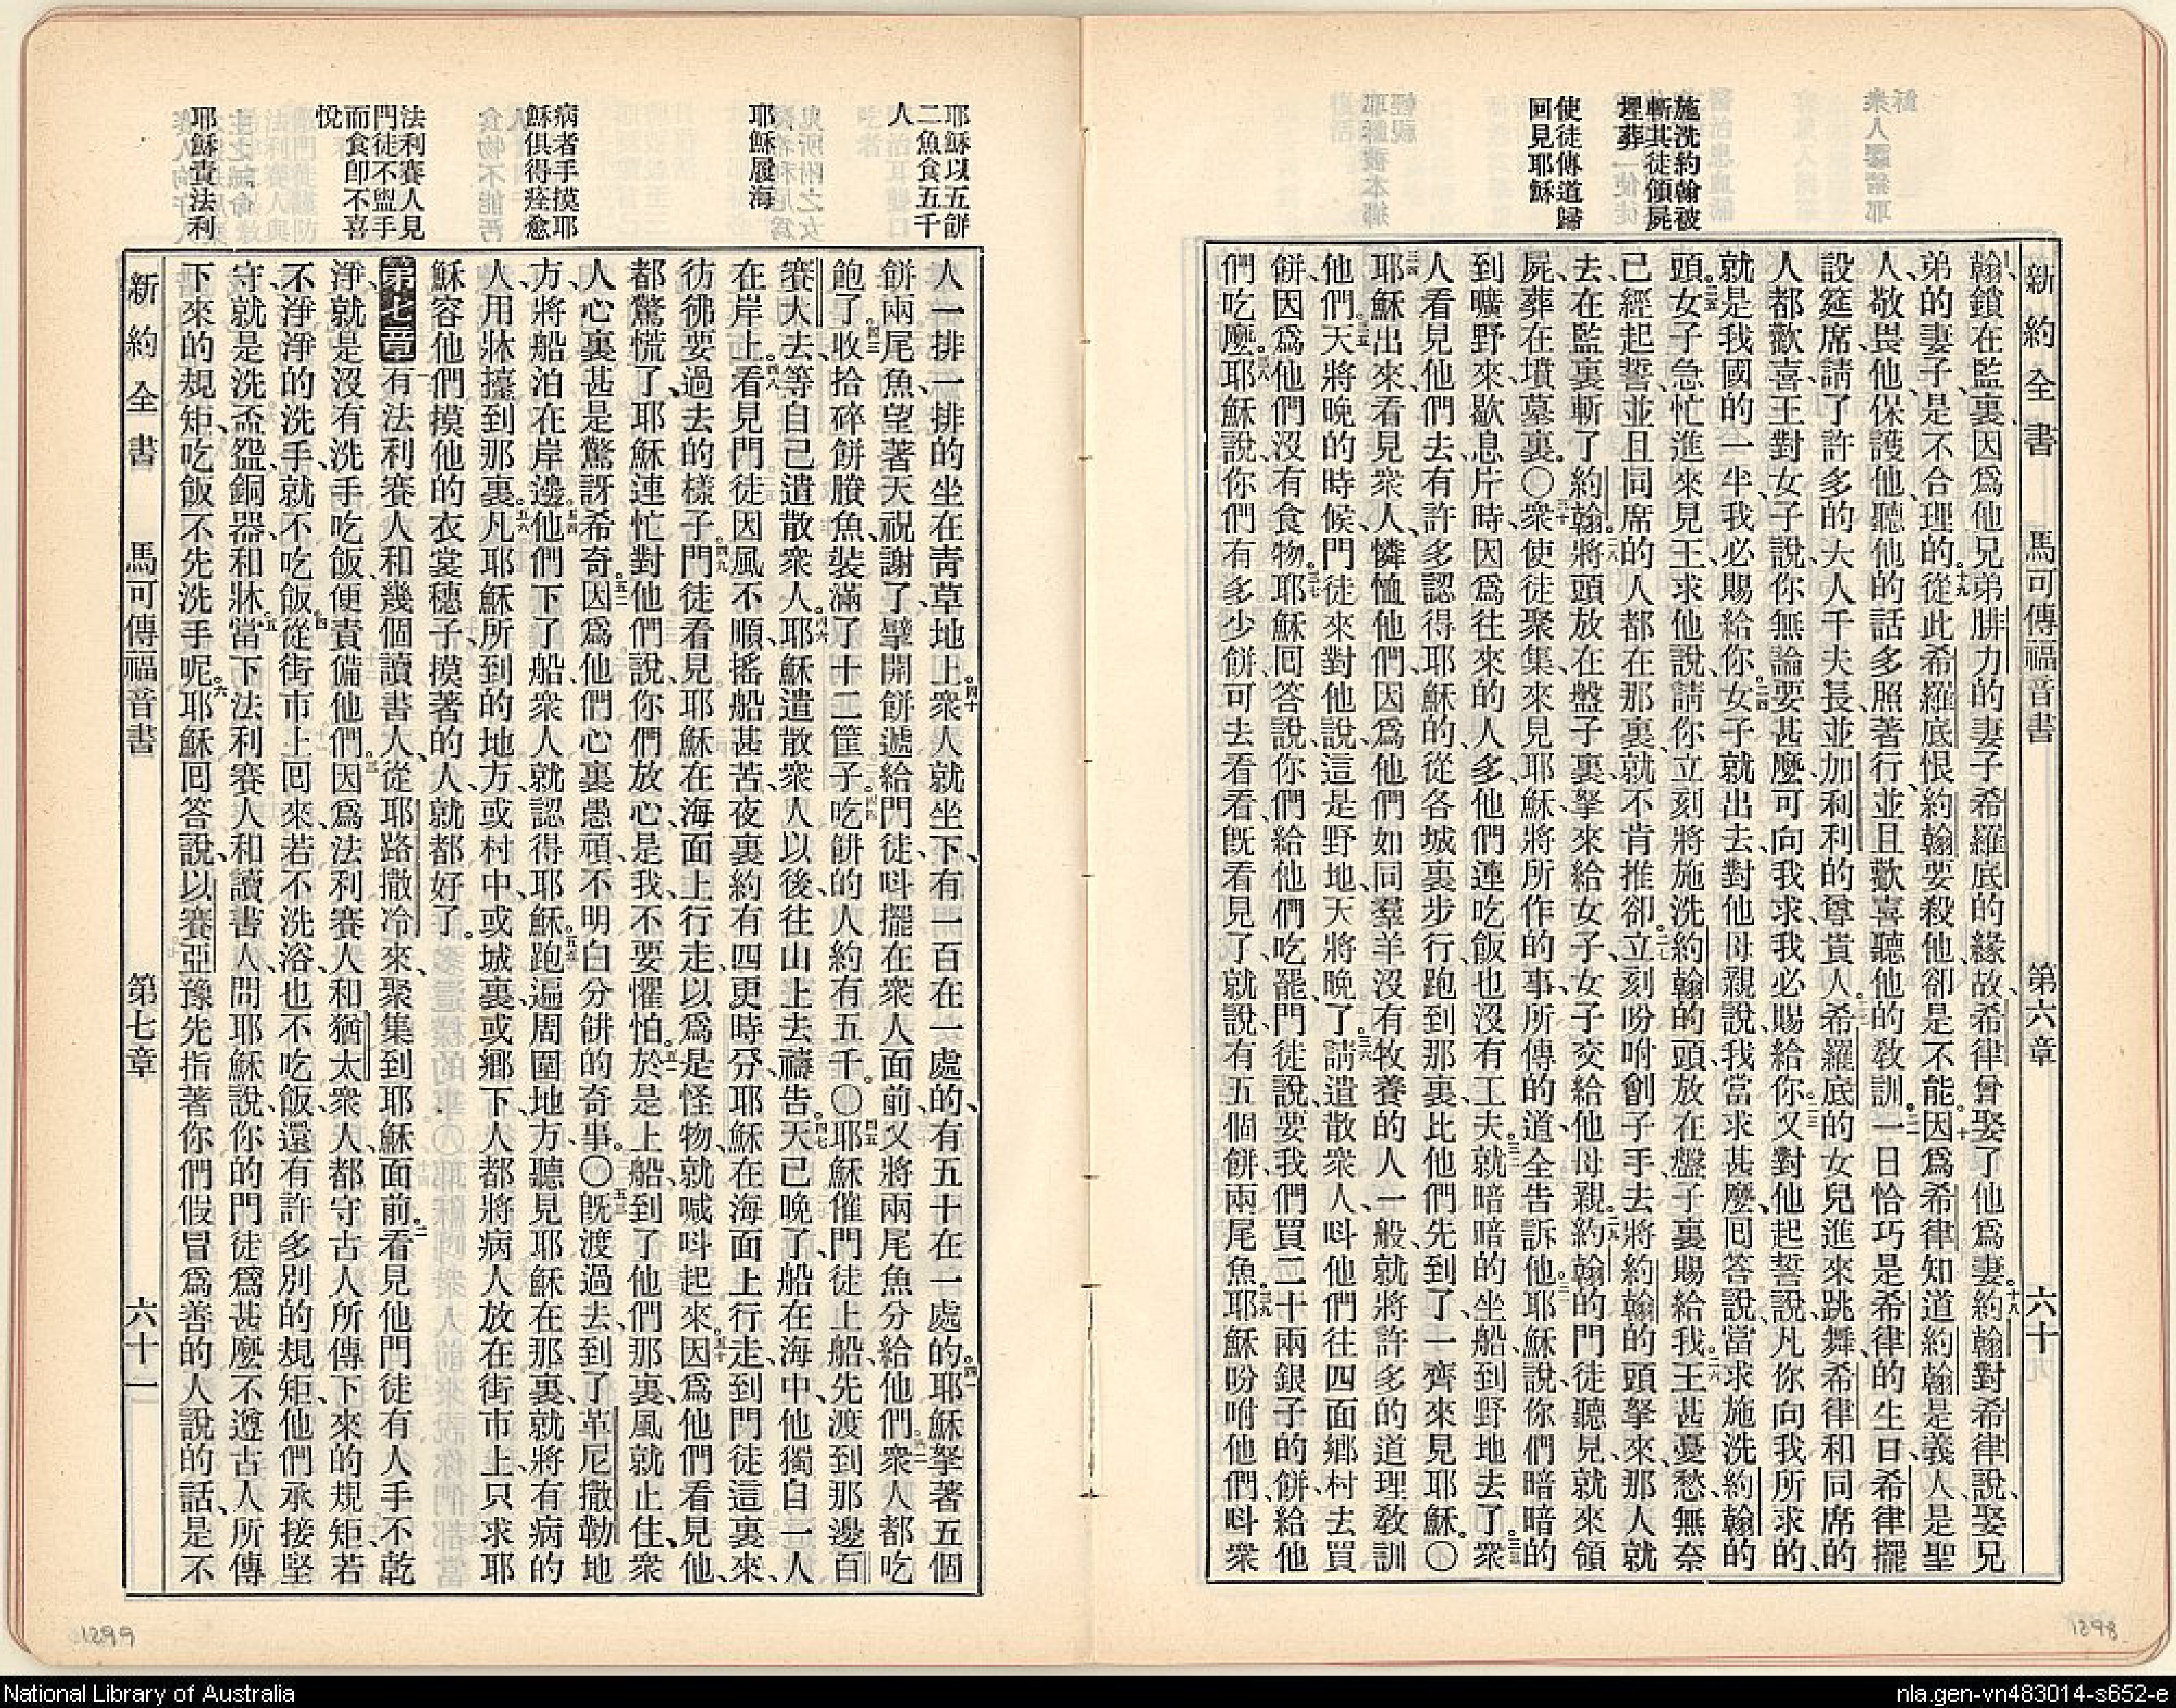 新約全書 馬可傳福音書 第六章 六十
施洗約翰被
斬其徒領屍
埋葬
使徒傳道歸
回見耶穌
翰、鎖在監裏、因爲他兄弟腓力的妻子希羅底的緣故、希律曾娶了他爲妻。約翰對希律說、娶兄
弟的妻子、是不合理的。從此希羅底恨約翰、要殺他、卻是不能。因爲希律知道約翰是義人、是聖
人、敬畏他、保護他、聽他的話、多照著行、並且歡喜聽他的敎訓。一日恰巧是希律的生日、希律擺
設筵席、請了許多的大人、千夫長、並加利利的尊貴人。希羅底的女兒進來跳舞、希律和同席的
人都歡喜、王對女子說、你無論要甚麼、可向我求、我必賜給你。又對他起誓說、凡你向我所求的、
就是我國的一半、我必賜給你。女子就出去、對他母親說、我當求甚麼、回答說、當求施洗約翰的
頭。女子急忙進來見王、求他說、請你立刻將施洗約翰的頭、放在盤子裏賜給我。王甚憂愁、無奈
已經起誓、並且同席的人都在那裏、就不肯推卻。立刻吩咐劊子手、去將約翰的頭拏來、那人就
去、在監裏斬了約翰。將頭放在盤子裏、拏來給女子、女子交給他母親。約翰的門徒聽見、就來領
屍、葬在墳墓裏。○衆使徒聚集來見耶穌、將所作的事、所傳的道、全告訴他。耶穌說、你們暗暗的
到曠野來、歇息片時、因爲往來的人多、他們連吃飯也沒有工夫。就暗暗的坐船到野地去了。衆
人看見他們去、有許多認得耶穌的、從各城裏步行、跑到那裏、比他們先到了、一齊來見耶穌。○
耶穌出來、看見衆人、憐恤他們、因爲他們如同羣羊沒有牧養的人一般、就將許多的道理敎訓
他們。天將晚的時候、門徒來對他說、這是野地、天將晚了。請遣散衆人、呌他們往四面鄉村去買
餅、因爲他們沒有食物。耶穌回答說、你們給他們吃罷、門徒說、要我們買二十兩銀子的餅給他
們吃麼。耶穌說、你們有多少餅、可去看看、旣看見了、就說、有五個餅、兩尾魚。耶穌吩咐他們、呌衆
1298
耶穌以五餅
二魚食五千
人
耶穌履海
病者手摸耶
穌俱得痊愈
法利賽人見
門徒不盥手
而食卽不喜
悅
耶穌責法利
人一排一排的坐在靑草地上。衆人就坐下、有一百在一處的、有五十在一處的。耶穌拏著五個
餅兩尾魚、望著天祝謝了、擘開餅遞給門徒、呌擺在衆人面前、又將兩尾魚分給他們。衆人都吃
飽了。收拾碎餅賸魚、裝滿了十二筐子。吃餅的人約有五千。○耶穌催門徒上船、先渡到那邊百
賽大去、等自己遣散衆人。耶穌遣散衆人以後、往山上去禱告。天已晚了、船在海中、他獨自一人
在岸上。看見門徒因風不順、搖船甚苦、夜裏約有四更時分、耶穌在海面上行走、到門徒這裏來、
彷彿要過去的樣子。門徒看見耶穌在海面上行走、以爲是怪物、就喊呌起來。因爲他們看見他、
都驚慌了、耶穌連忙對他們說、你們放心、是我、不要懼怕。於是上船、到了他們那裏、風就止住、衆
人心裏甚是驚訝希奇。因爲他們心裏愚頑、不明白分餅的奇事。○旣渡過去、到了革尼撒勒地
方、將船泊在岸邊。他們下了船、衆人就認得耶穌。跑遍周圍地方、聽見耶穌在那裏、就將有病的
人、用牀擡到那裏。凡耶穌所到的地方、或村中、或城裏、或鄉下、人都將病人放在街市上、只求耶
穌容他們摸他的衣裳穗子、摸著的人、就都好了。
第七章 有法利賽人、和幾個讀書人、從耶路撒冷來、聚集到耶穌面前。看見他門徒有人手不乾
淨、就是沒有洗手吃飯、便責備他們。因爲法利賽人和猶太衆人、都守古人所傳下來的規矩、若
不淨淨的洗手、就不吃飯。從街市上回來、若不洗浴、也不吃飯、還有許多別的規矩、他們承接堅
守、就是洗盃盌銅器和牀。當下法利賽人和讀書人、問耶穌說、你的門徒爲甚麼不遵古人所傳
下來的規矩、吃飯不先洗手呢。耶穌回答說、以賽亞豫先指著你們假冒爲善的人說的話、是不
新約全書 馬可傳福音書 第七章 六十一
1299
National Library of Australia
nla.gen-vn483014-s652-e